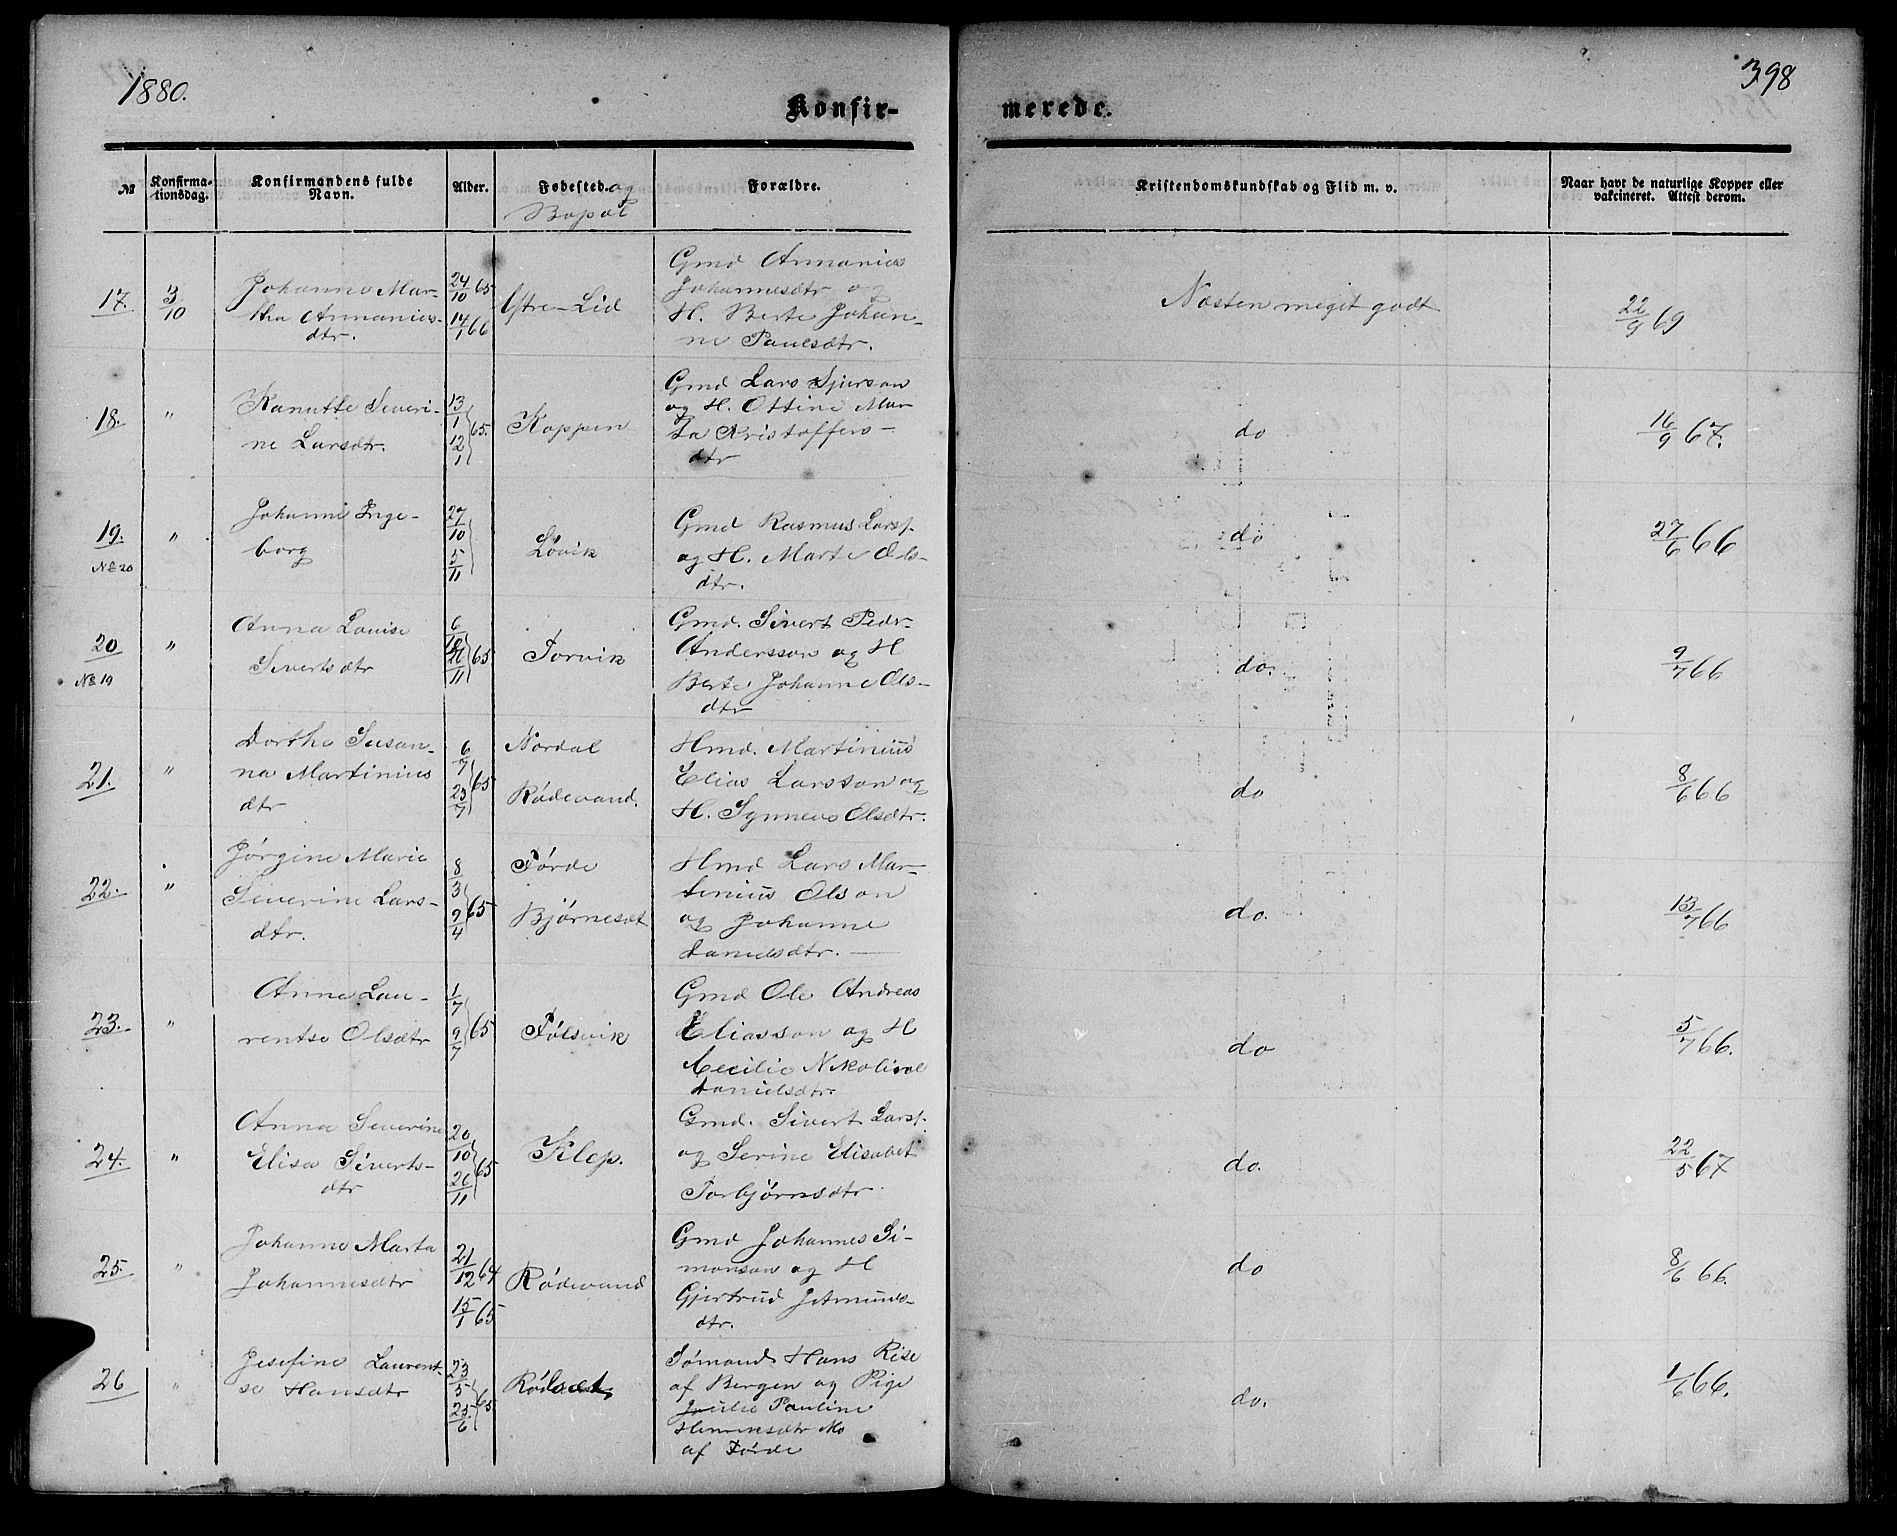 1880.
398
Konfir-
merede.
№
Konfirma-
tionsdag.
Konfirmandens fulde
Navn.
Alder.
Fødested. og
Bopæl
Forældre.
Kristendomskundskab og Flid m. v.
Naar havt de naturlige Kopper eller
vakcineret. Attest derom.
17.
3/10
Johanne Mar-
tha Annanias-
dtr.
24/10 65
14/1 66
Ytre-Lid
Gmd Annanias
Johannesdtr og
H. Berte Johan-
ne Paulsdtr.
Næsten meget godt
22/9 69
18.
"
Kanutte Severi-
ne Larsdtr.
13/1
12/1
65.
Koppen
Gmd Lars Sjurson
og H. Ottine Mar
ta Kristoffers-
dtr
do
16/9 67.
19.
№ 20
"
Johanne Inge-
borg
27/10
5/11
Løvik
Gmd Rasmus Larss.
og H. Marte Ols-
dtr.
do
27/6 66
20
№ 19
"
Anna Louise
Sivertsdtr
6/10
26/11
65
Torvik
Gmd. Sivert Pedr-
Andersson og H
Berte Johanne Ols-
dtr
do.
9/7 66
21.
"
Dorthe Susan-
na Martinius
dtr
6/7
23/7
65
Nordal
Rødevand.
Hmd. Martinius
Elias Larsson og
H. Synneve Olsdtr.
do
8/6 66
22.
"
Jørgine Marie
Severine Lars-
dtr.
8/3
9/4
65
Førde
Bjørneset
Hmd Lars Mar-
tinius Olson
og Johanne
Danielsdtr.
do.
13/7 66
23.
"
Anne Lau-
rentse Olsdtr
1/7
9/7
65
Følsvik
Gmd Ole Andreas
Eliasson og H
Cecilie Nikoline
Danielsdtr
do
5/7 66.
24.
"
Anna Severine
Elisa Siverts-
dtr
20/10
26/11
65
Klep.
Gmd. Sivert Larss.
og Serine Elisabet
Torbjørnsdtr.
do.
22/5 67
25.
"
Johanne Marta
Johannesdtr
21/12 64
15/1 65
Rødevand
Gmd Johannes Si-
monson og H
Gjertrud Jetmunds-
dtr.
do
8/6 66.
26
"
Josefine Laurent-
se Hansdtr
23/5
25/6
65
Rødset
Sømand Hans Rise
af Bergen og Pige
Julie Pauline
Henriksdtr Mo
af Førde
do.
1/6 66.